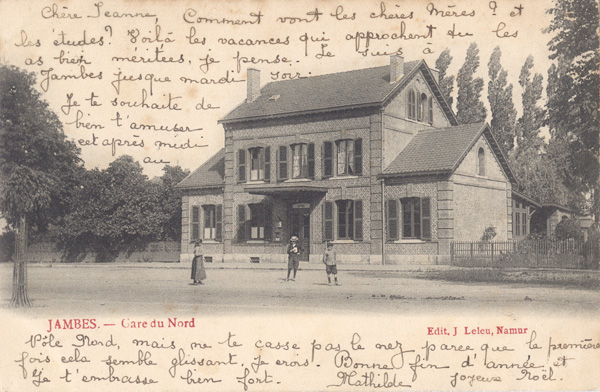 Chère Jeanne, Comment vont les chères Mères ? et
les études ? Voilà les vacances qui approchent du les
as bien méritées, je pense. Je suis à
Jambes jusque mardi soir.
Je te souhaite de
bien t'amuser
cet après midi
au
JAMBES. — Gare du Nord
Edit. J Leleu, Namur
Pôle Nord, mais, ne te casse pas le nez parce que la première
fois cela semble glissant, je crois. Bonne fin d'année et
Je t'embrasse bien fort. Mathilde Joyeux Noël.